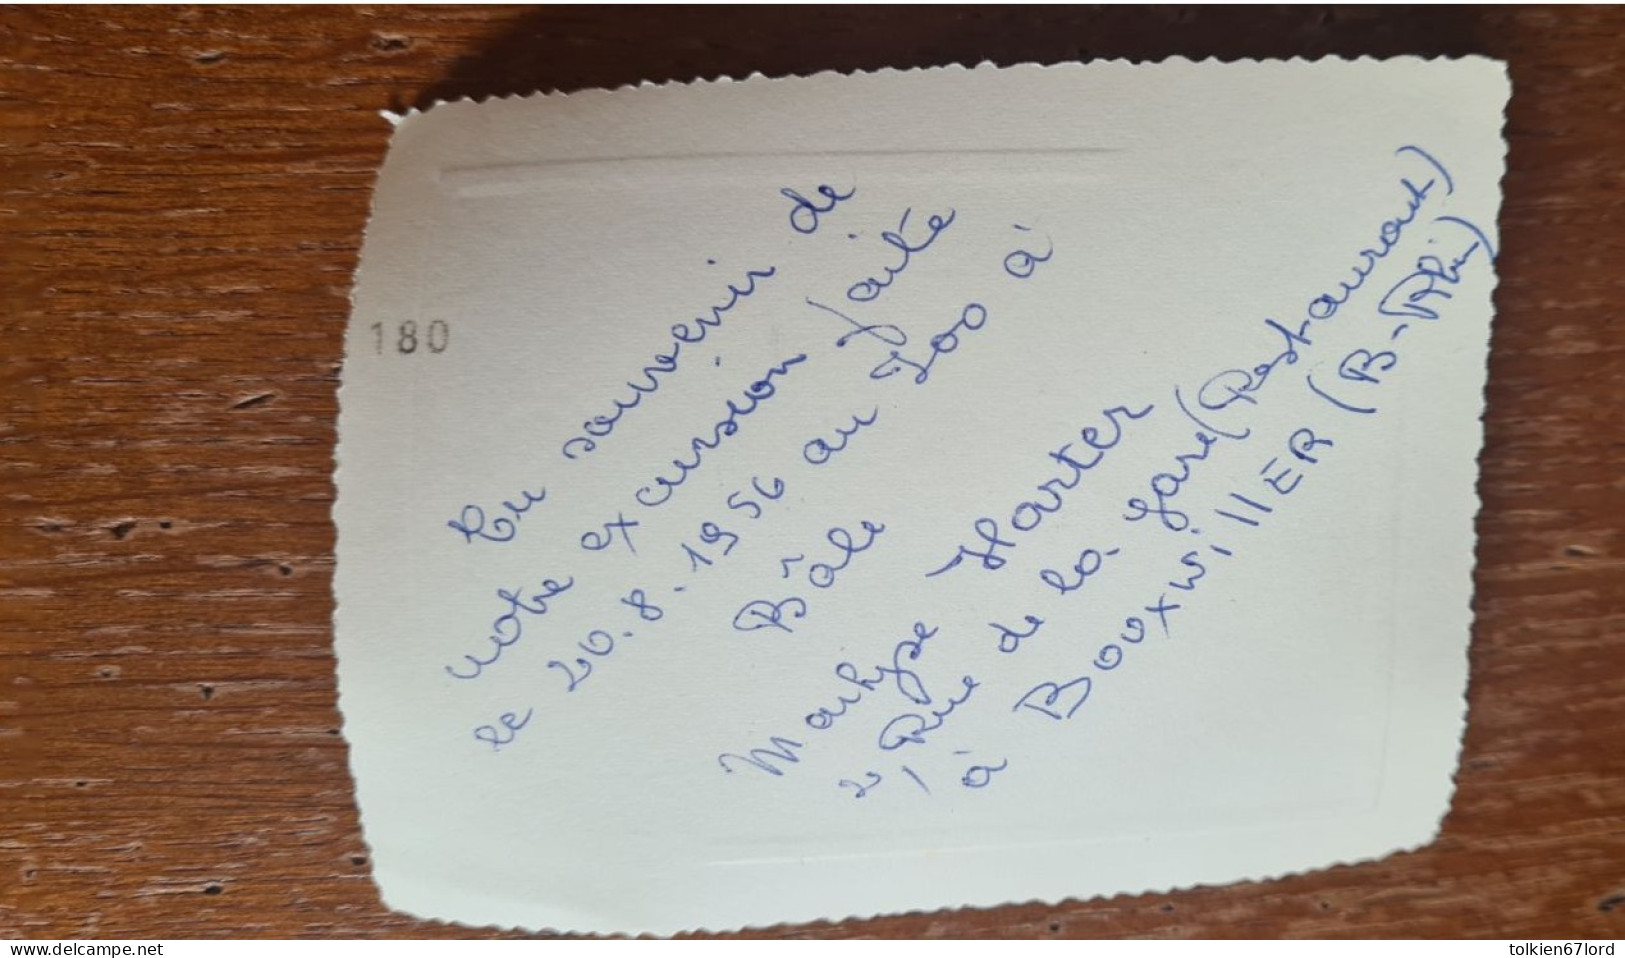 180
En souvenir de
notre excursion faite
le 20.8.1956 au Zoo à
Bâle
Marlyse Harter
2, Rue de la Gare (Restaurant)
à BouxwillER (B-Rhin)
www.delcampe.net
tolkien67lord